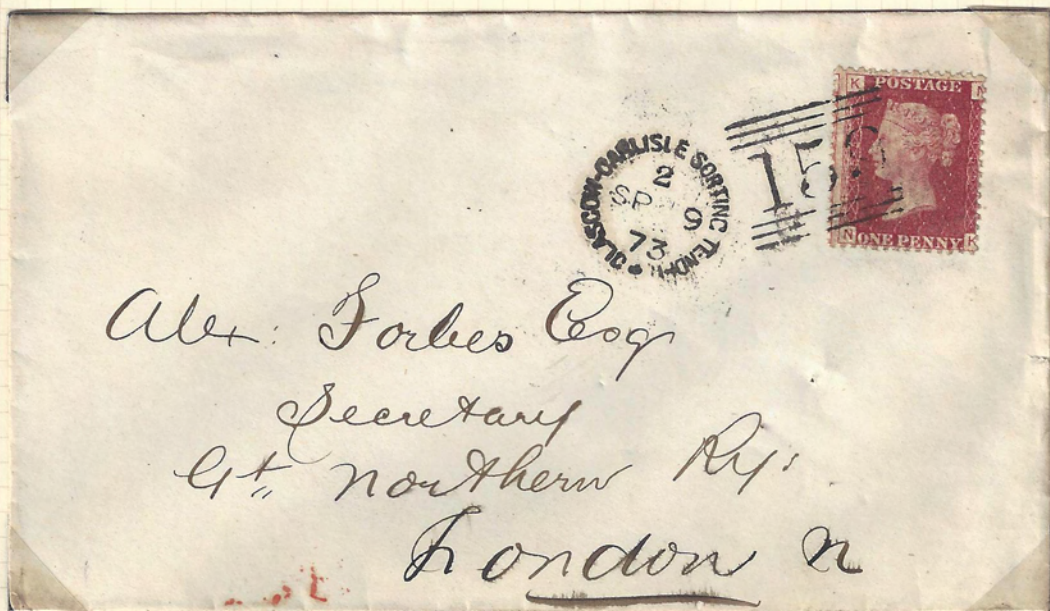 K POSTAGE N
GLASGOW-CARLISLE SORTING TENDER
2
SP 9
73
15
N ONE PENNY K
Alex: Forbes Esq
Secretary
Gt. Northern Ry:
London N